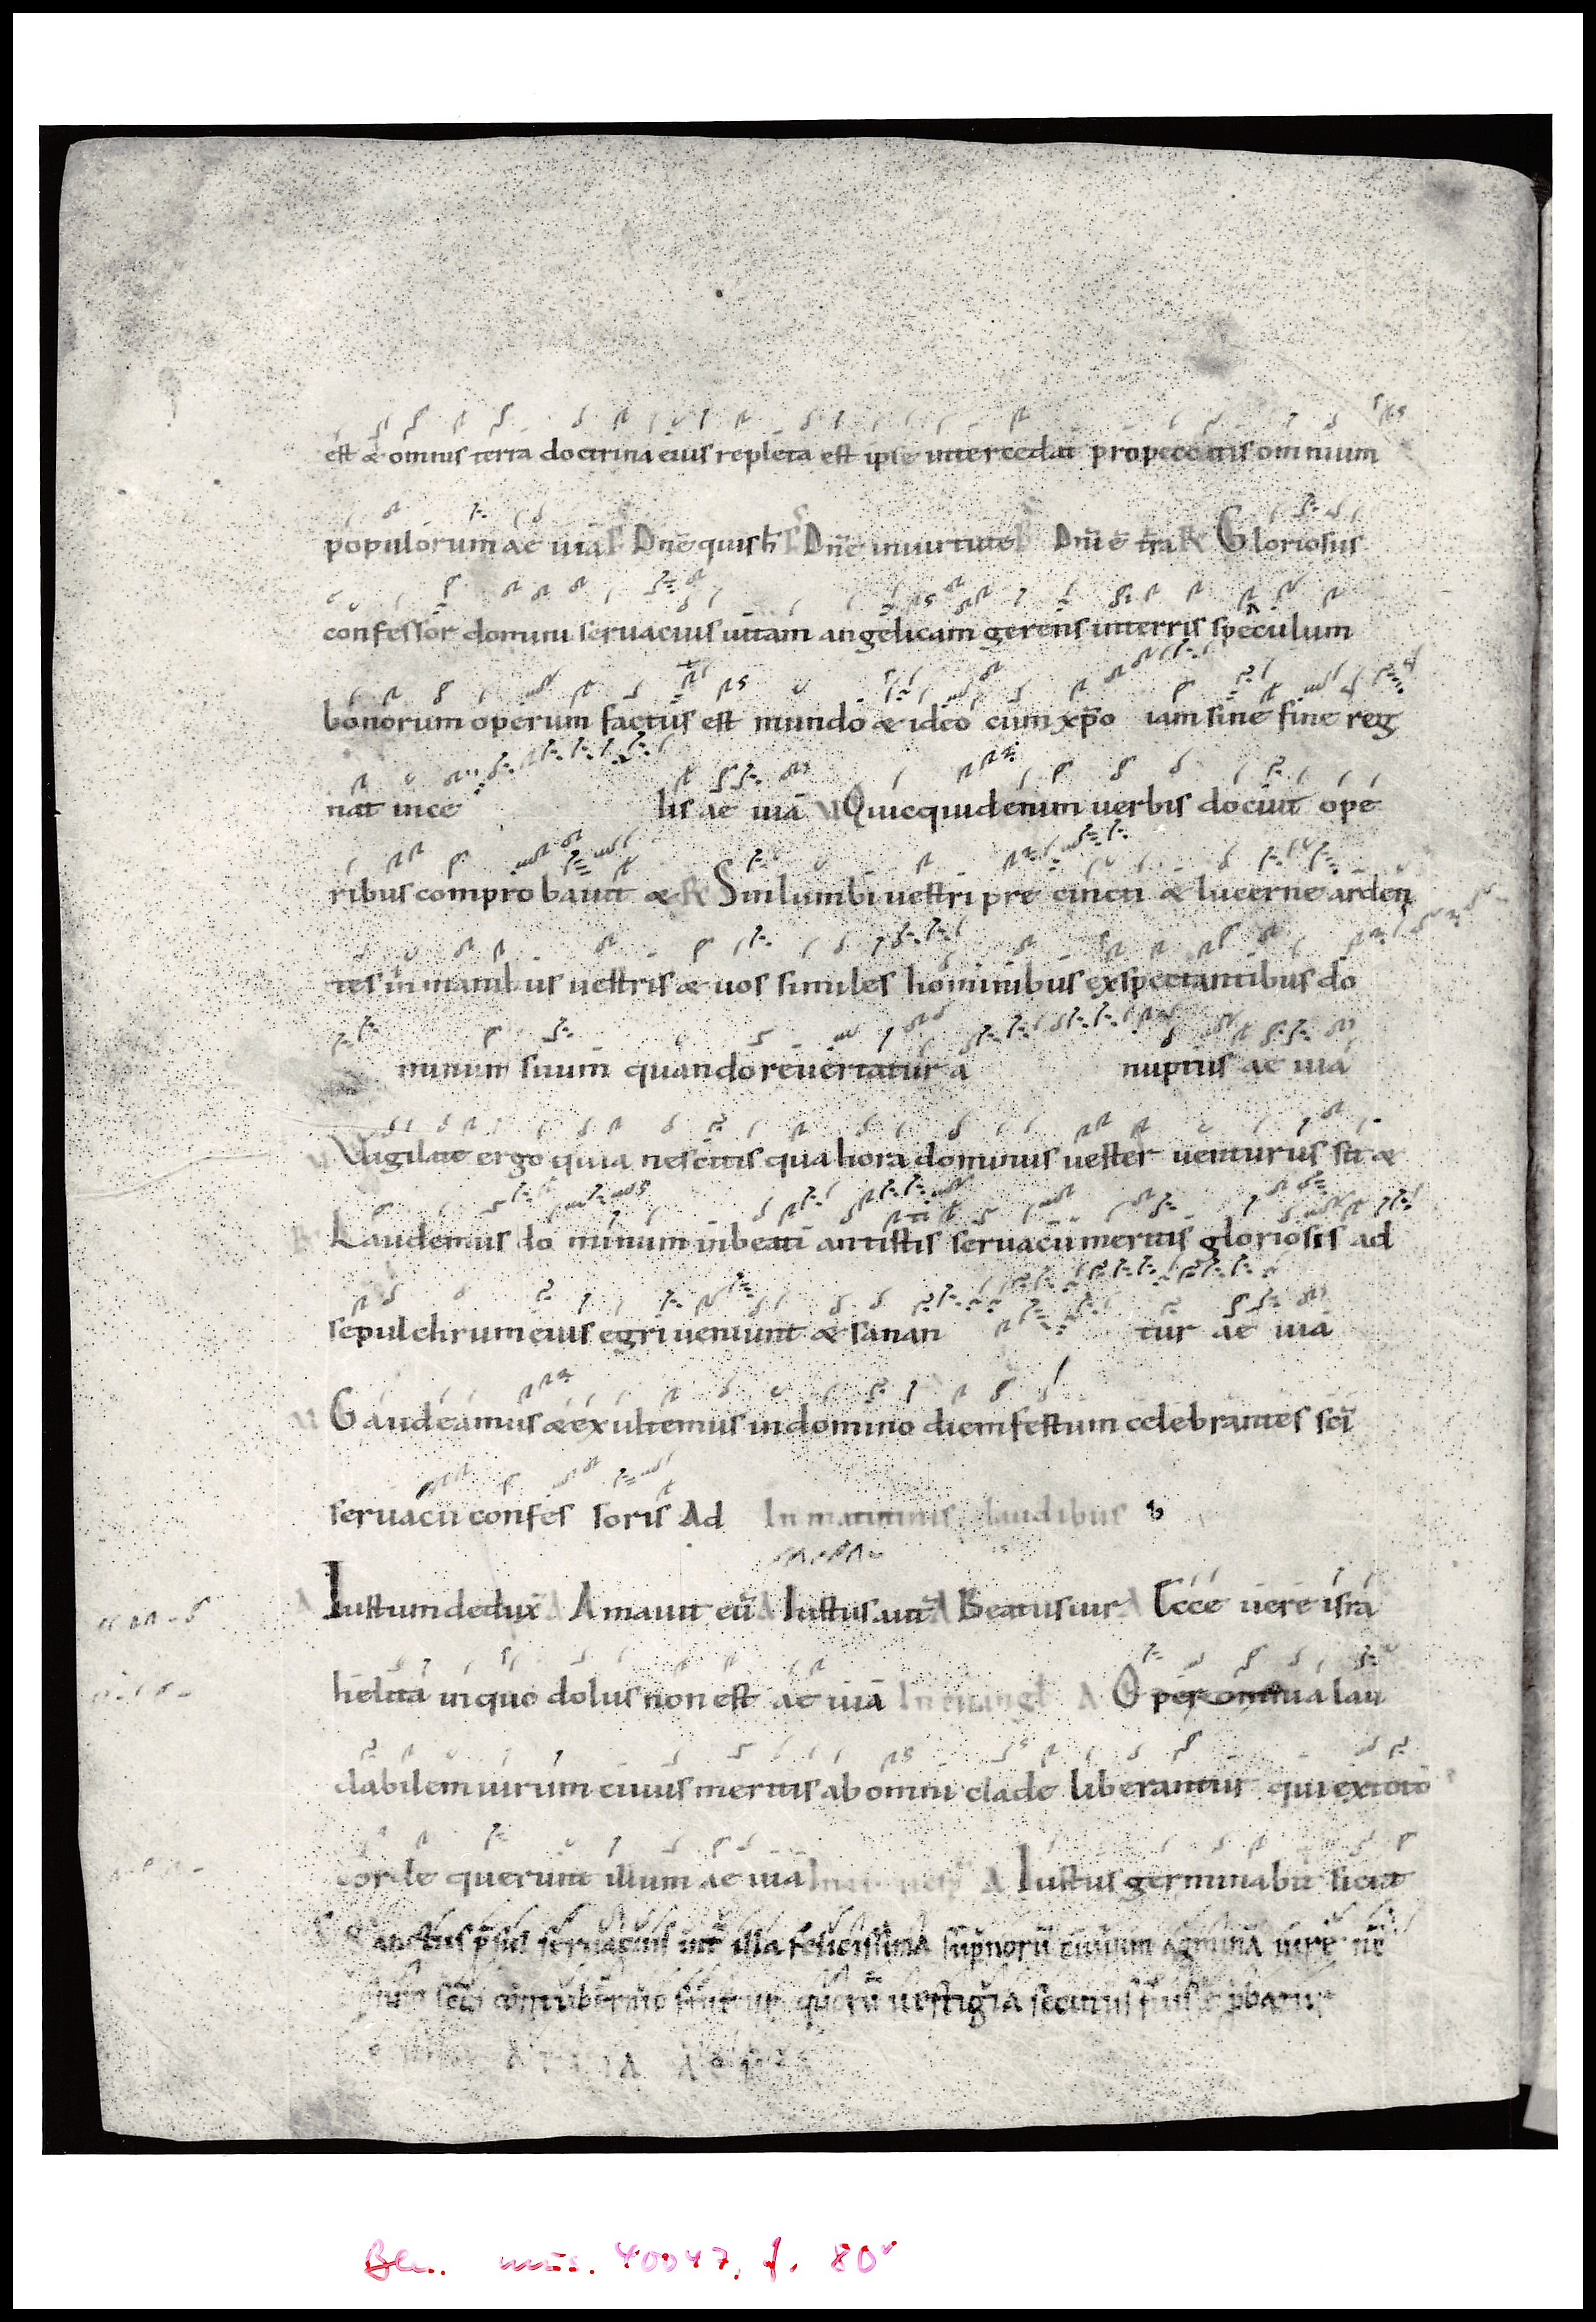 est & omnis terra doctrina eius repleta est ipse intercedat pro peccatis omnium
populorum ae uia P Dne quis h P Dne in uirtute P Dni e tra R Gloriosus
confessor domini seruacius uitam angelicam gerens in terris speculum
bonorum operum factus est mundo & ideo cum xpo iam sine fine reg
nat in ce lis ae uia V Quicquid enim uerbis docuit ope
ribus comprobauit & R Sin lumbi uestri pre cincti & lucerne arden
tes in manibus uestris & uos similes hominibus exspectantibus do
minum suum quando reuertatur a nuptiis ae uia
V Vigilate ergo quia nescitis qua hora dominus uester uenturus sit &
R Laudemus do minum in beati antistis seruacii meritis gloriosis ad
sepulchrum eius egri ueniunt & sanan tur ae uia
V Gaudeamus & exultemus in domino diem festum celebrantes sci
seruacii confes soris Ad In matutinis laudibus
A Iustum dedux A Amauit eu A Iustus aut A Beatus uir A Ecce uere isra
helita in quo dolus non est ae uia In euangl A O per omnia lau
dabilem uirum cuius meritis ab omni clade liberantur qui ex toto
corde querunt illum ae uia A Iustus germinabit sicut
Sanctus psul seruacius int illa felicissima supnoru ciuium agmina iure
quoru uestigia secutus
Bln. mus. 40047, f. 80v